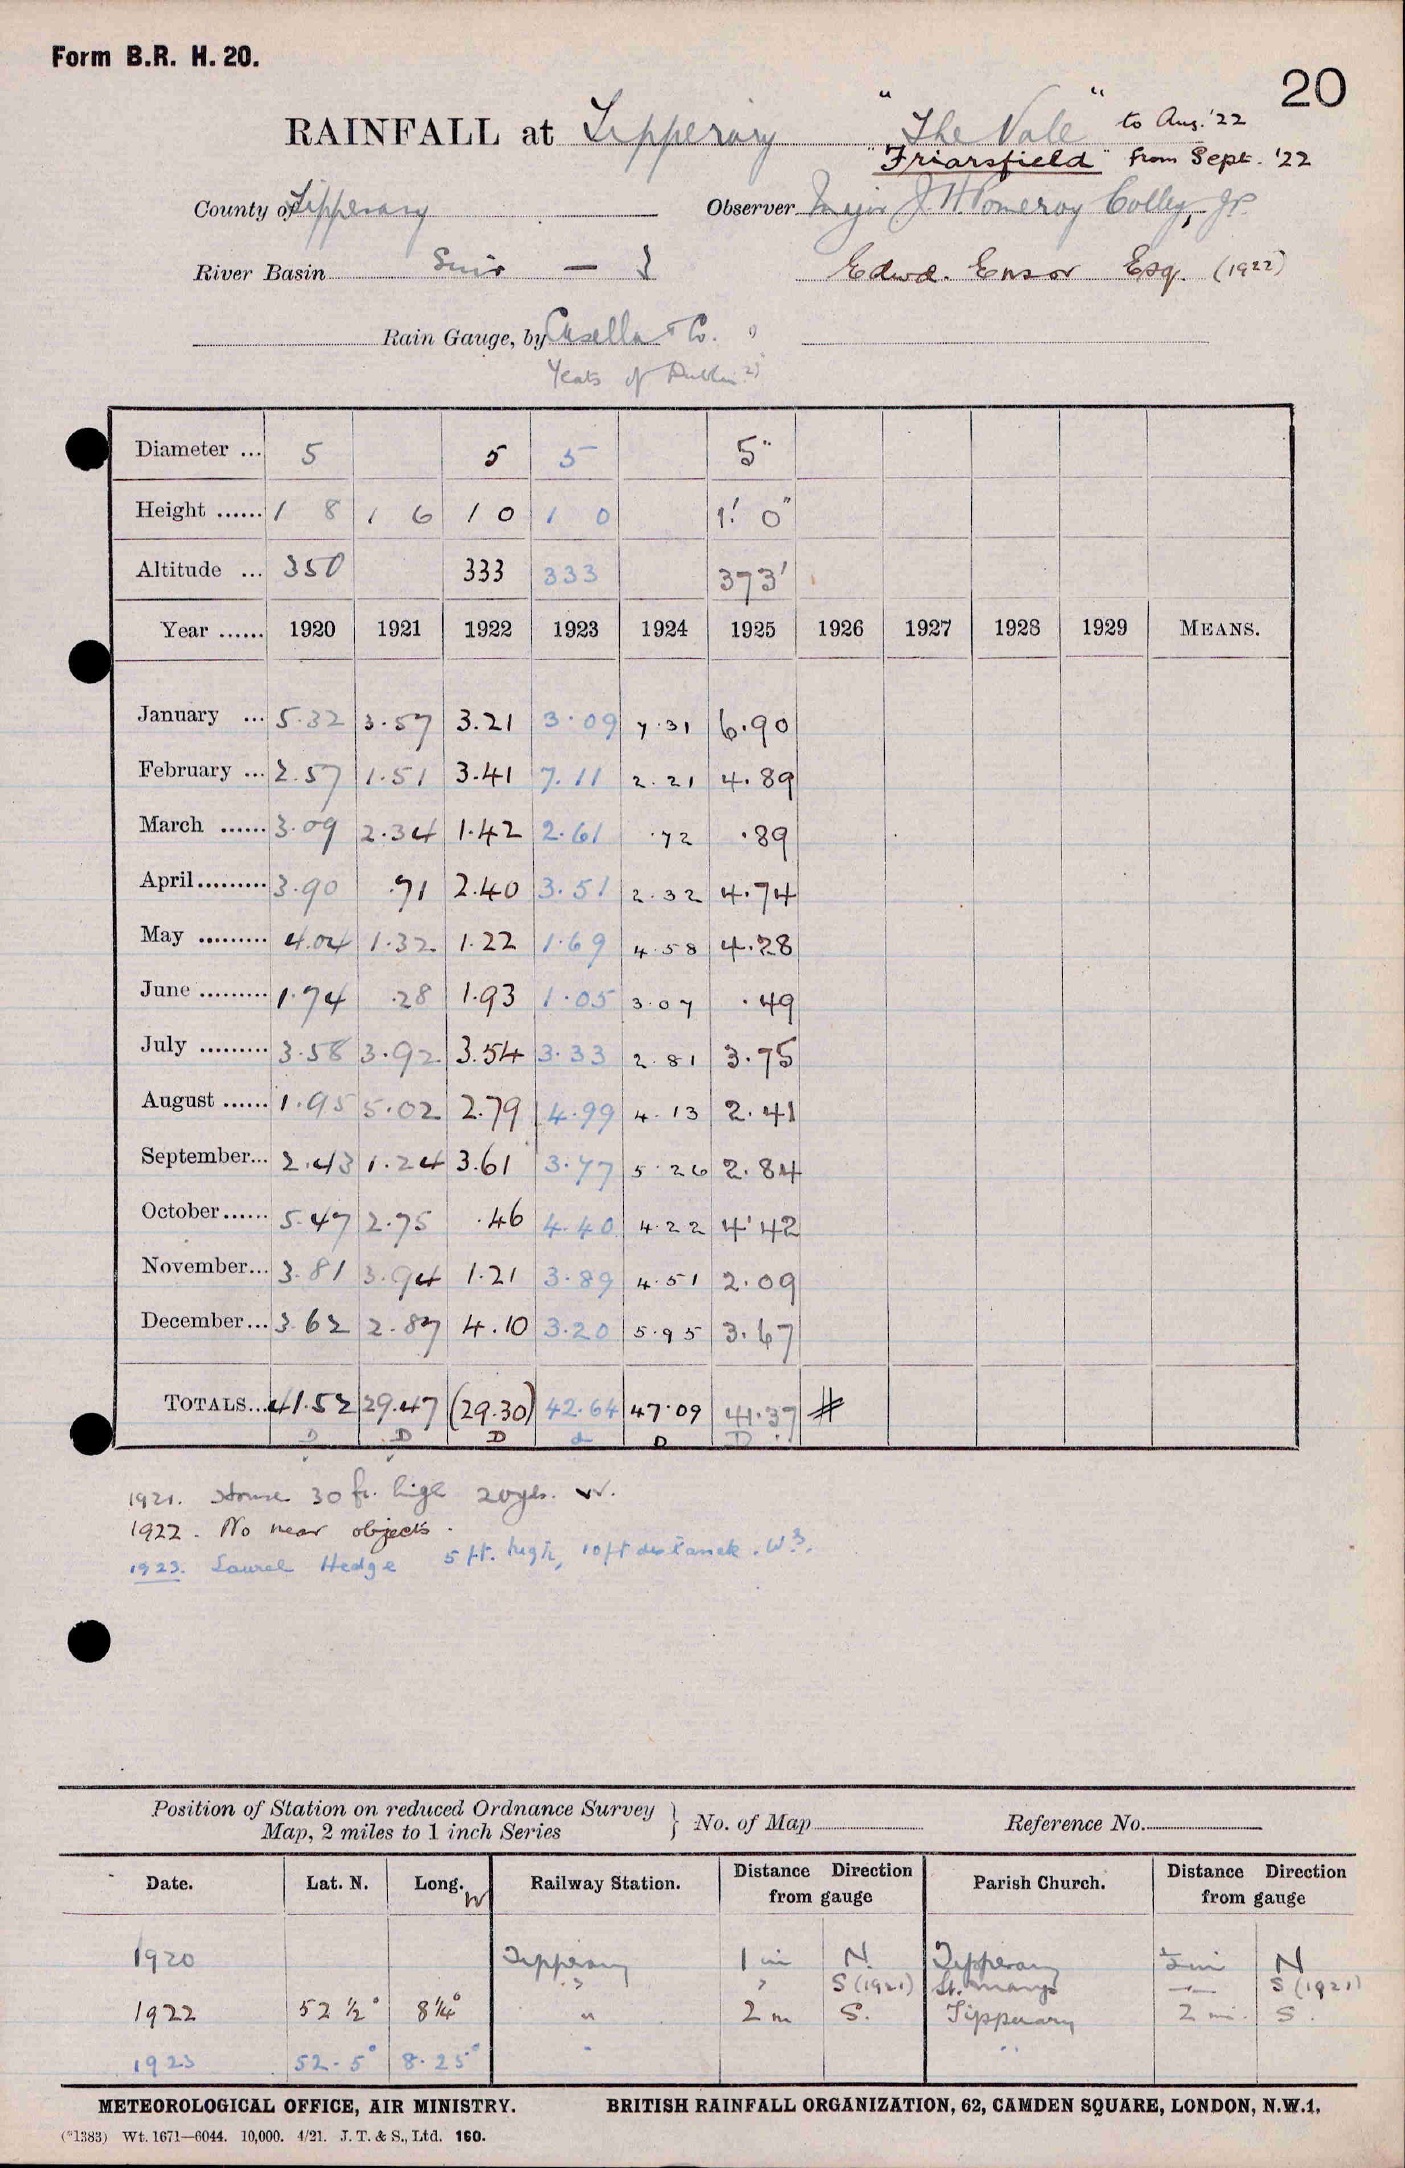 Form B.R. H. 20.
20
RAINFALL at Tipperary "The Vale" to Aug. '22
"Friarsfield" from Sept. '22
County of Tipperary Observer Major J. H. Pomeroy Colley, J.P.
River Basin Suir — Edwd. Ensor Esq. (1922)
Rain Gauge, by Casella & Co.
Yeats of Dublin
Diameter ... 5 5 5 5"
Height ...... 1 8 1 6 1 0 1 0 1' 0"
Altitude ... 350 333 333 373'
Year ...... 1920 1921 1922 1923 1924 1925 1926 1927 1928 1929 MEANS.
January ... 5.32 3.57 3.21 3.09 7.31 6.90
February ... 2.57 1.51 3.41 7.11 2.21 4.89
March ...... 3.09 2.34 1.42 2.61 .72 .89
April ......... 3.90 .71 2.40 3.51 2.32 4.74
May ......... 4.04 1.32 1.22 1.69 4.58 4.28
June ......... 1.74 .28 1.93 1.05 3.07 .49
July ......... 3.58 3.92 3.54 3.33 2.81 3.75
August ...... 1.95 5.02 2.79 4.99 4.13 2.41
September... 2.43 1.24 3.61 3.77 5.26 2.84
October...... 5.47 2.75 .46 4.40 4.22 4.42
November... 3.81 3.94 1.21 3.89 4.51 2.09
December... 3.62 2.87 4.10 3.20 5.95 3.67
TOTALS... 41.52 29.47 (29.30) 42.64 47.09 41.37 #
D D D d D D
1921. House 30 ft. high 20 yds. W.
1922. No near objects.
1923. Laurel Hedge 5 ft. high, 10 ft distance.
Position of Station on reduced Ordnance Survey } No. of Map Reference No.
Map, 2 miles to 1 inch Series
Date. Lat. N. Long. W Railway Station. Distance Direction from gauge Parish Church. Distance Direction from gauge
1920 Tipperary 1 mi N. Tipperary ½ mi N
" " S (1921) St. Marys — S (1921)
1922 52 ½° 8¼° " 2 m S. Tipperary 2 mi. S.
1923 52.5° 8.25° " "
METEOROLOGICAL OFFICE, AIR MINISTRY. BRITISH RAINFALL ORGANIZATION, 62, CAMDEN SQUARE, LONDON, N.W.1.
(*1383) Wt. 1671—6044. 10,000. 4/21. J. T. & S., Ltd. 160.